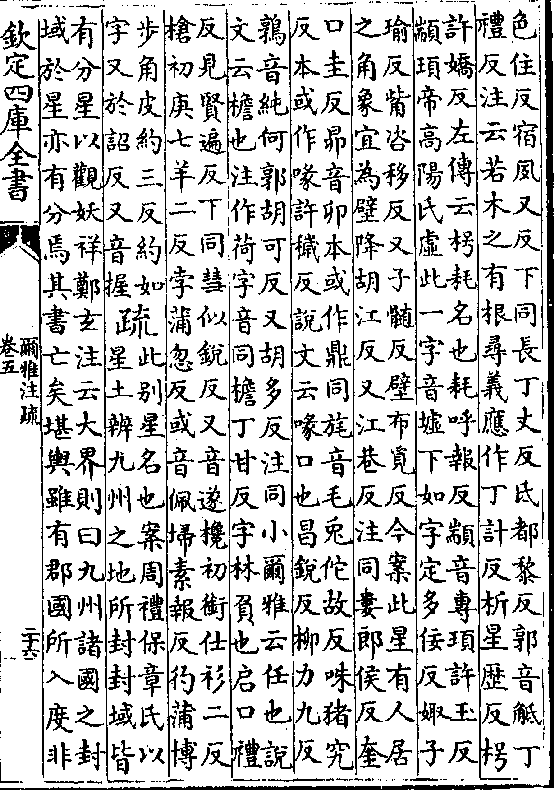 色住反宿夙又反下同長丁丈反氐都黎反郭音觝丁
禮反注云若木之有根尋義應作丁計反析星歴反枵
許嬌反左傳云枵耗名也耗呼報反顓音專頊許玉反
顓頊帝高陽氏虛此一字音墟下如字定多佞反娵子
瑜反觜咨移反又子髓反壁布覓反今案此星有人居
之角象宜為壁降胡江反又江巷反注同婁郎侯反奎
口圭反昴音卯本或作鼎同旄音毛兎佗故反咮猪究
反本或作喙許穢反説文云喙口也昌銳反柳力九反
鶉音純何郭胡可反又胡多反注同小爾雅云任也說
文云檐也注作荷字音同檐丁甘反字林負也启口禮
反見賢遍反下同彗似銳反又音遂欃初銜仕衫二反
槍初庚七羊二反孛蒲忽反或音佩埽素報反彴蒲博
步角皮約三反約如
字又於詔反又音握
疏
此别星名也案周禮保章氏以
星土辨九州之地所封封域皆
有分星以觀妖祥鄭玄注云大界則曰九州諸國之封
域於星亦有分焉其書亡矣堪輿雖有郡國所入度非
欽定四庫全書
爾雅注疏
卷五
二十六